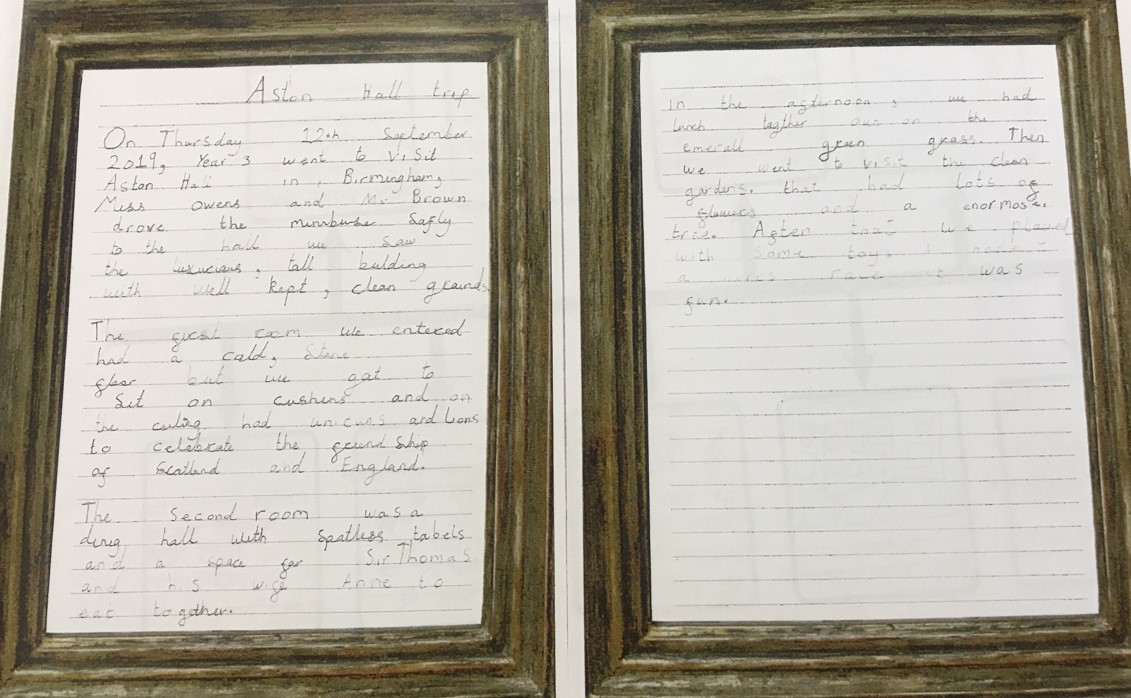 Aston Hall trip
On Thursday 12th Sgetember
2019, Year 3 went to visit
Aston Hall in Birmingham,
Miss Owens and Mr Brown
drove the minibuse Safly
to the hall we saw
the luxucious, tall bulding
with well kept, clean grounds
The first room we entered
had a cold, Stone
floor but we got to
Sit on cushens and on
the ceiling had unicuns and Lions
to celebrate the frundShip
of Scotland and England.
The Second room was a
ding hall with Spotless tabels
and a space for Sir Thomas
and his wife Anne to
eat together.
In the afternoon, we had
lunch togther out on the
emerall green grass. Then
we went to visit the clean
gardens. that had lots of
flowers and a enormose.
tree. After that we played
with some toys I had
a race it was
fun.